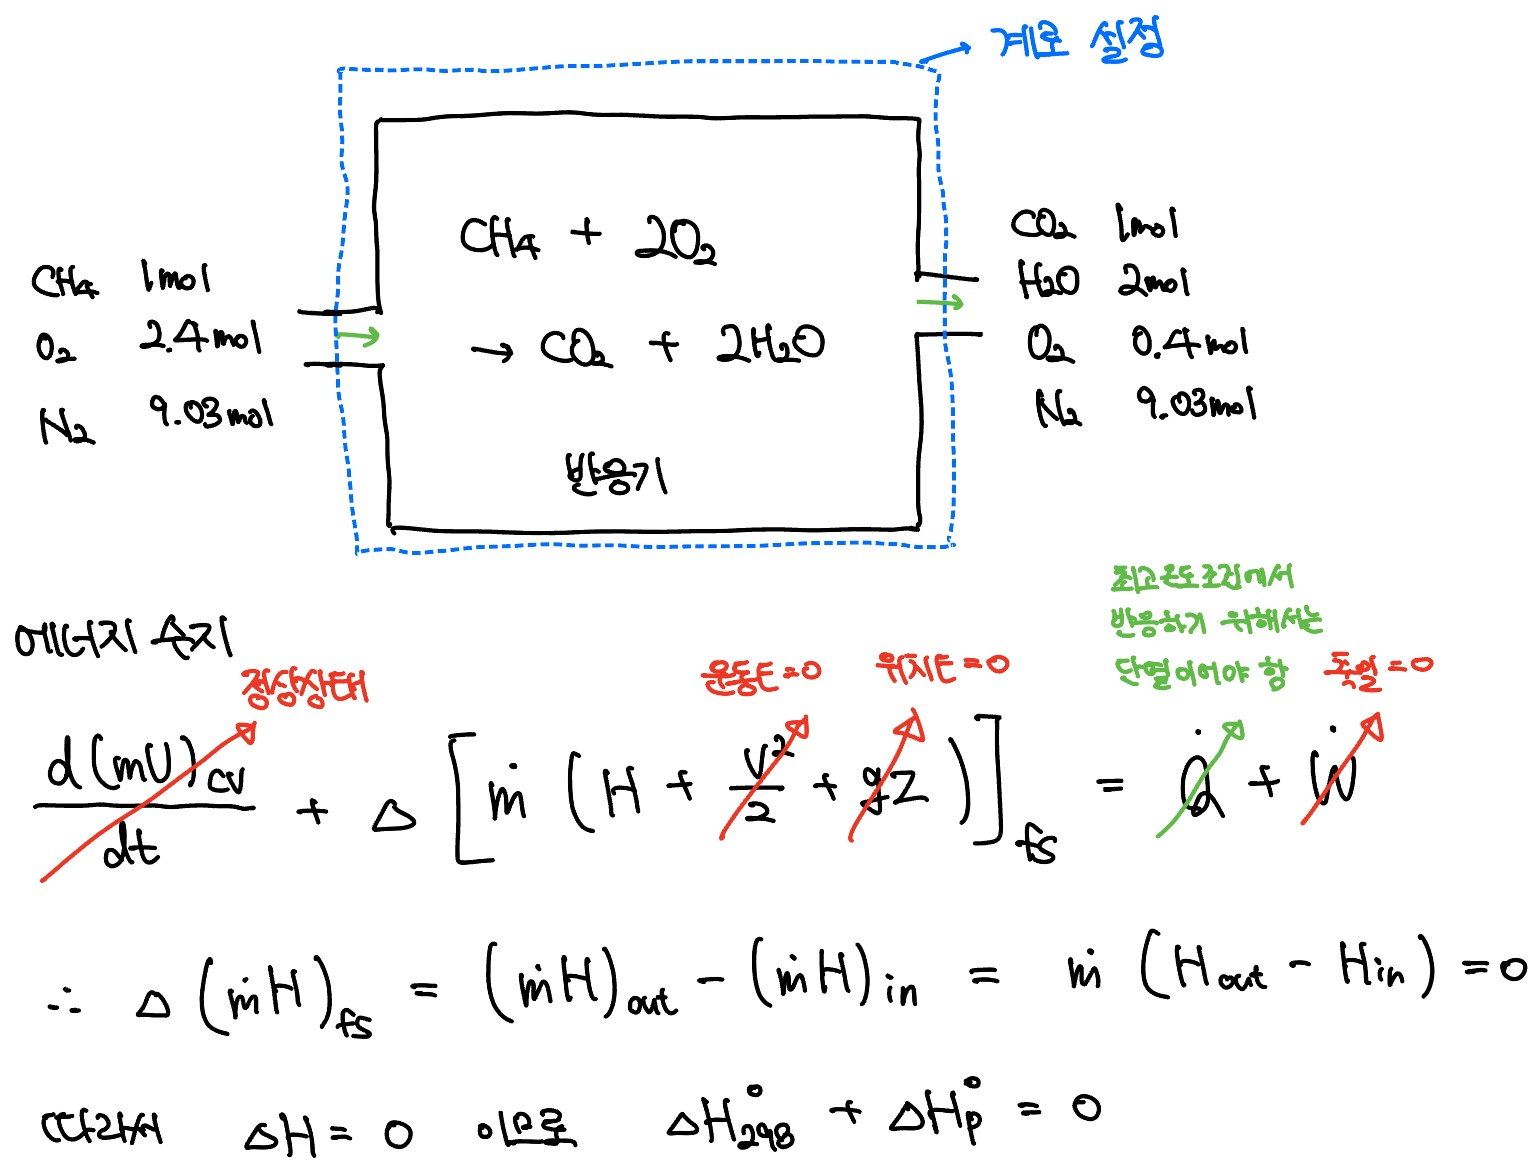 계로 설정
CH₄ 1mol
O₂ 2.4mol
N₂ 9.03mol
CH₄ + 2O₂
→ CO₂ + 2H₂O
반응기
CO₂ 1mol
H₂O 2mol
O₂ 0.4mol
N₂ 9.03mol
에너지 수지
정상상태
운동E=0
위치E=0
최고온도조건에서
반응하기 위해서는
단열이어야 함
축일=0
d(mU)cv/dt + Δ[ṁ(H + v²/2 + gz)]fs = Q̇ + Ẇ
∴ Δ(ṁH)fs = (ṁH)out - (ṁH)in = ṁ(Hout - Hin) = 0
따라서 ΔH = 0 이므로 ΔH°298 + ΔH°p = 0